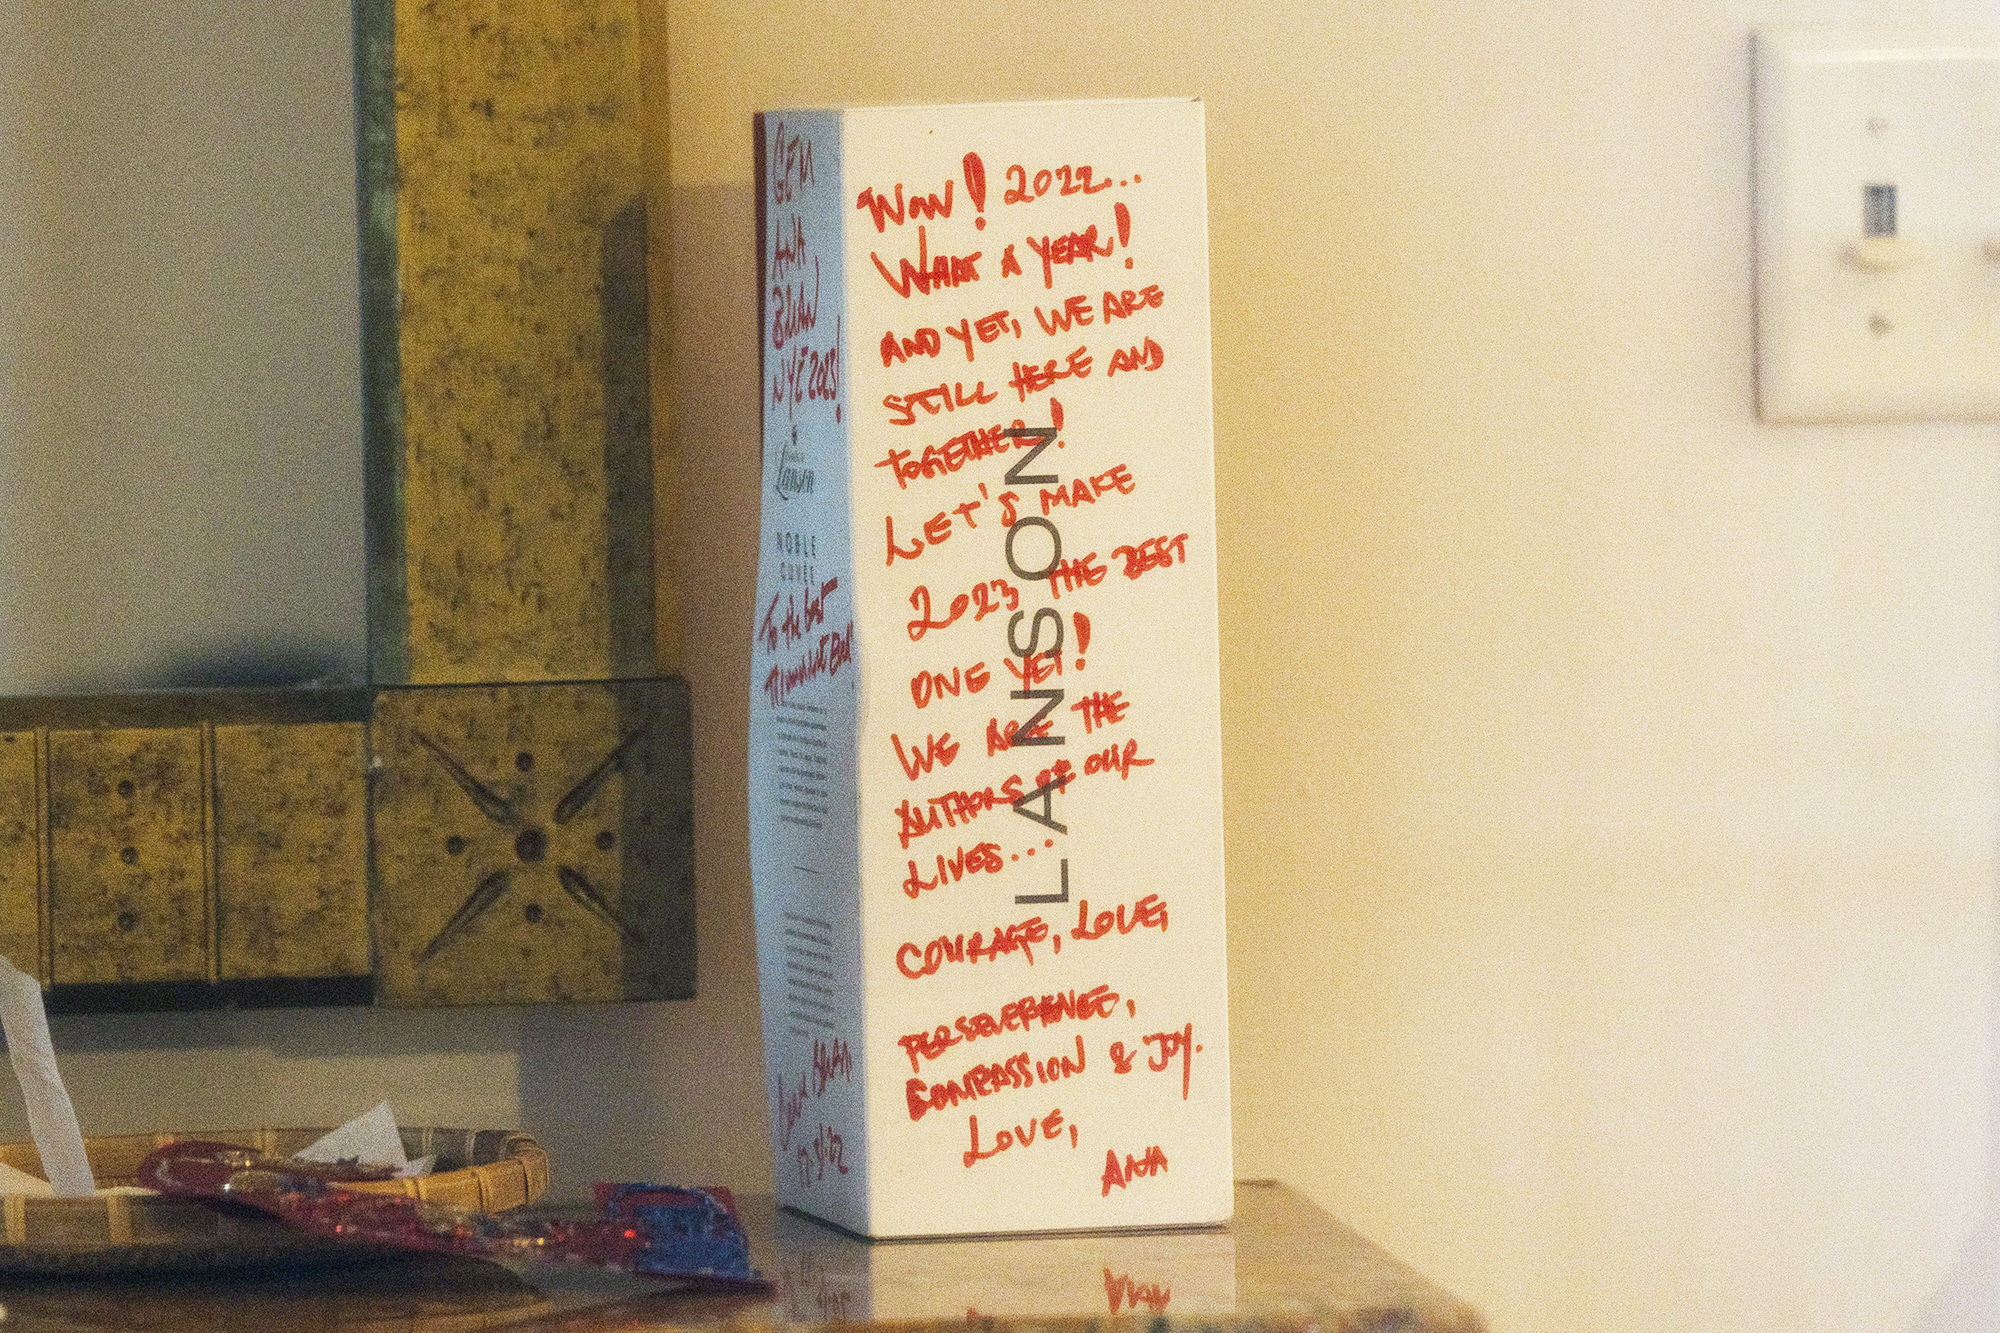 GEM
ANA
BRIAN
NYE 2023!
Lanson
NOBLE
CUVÉE
To the best
Love, BRIAN
12·31·22
WOW! 2022...
WHAT A YEAR!
AND YET, WE ARE
STILL HERE AND
TOGETHER!
LET'S MAKE
2023 THE BEST
ONE YET!
WE ARE THE
AUTHORS OF OUR
LIVES...
COURAGE, LOVE,
PERSEVERENCE,
COMPASSION & JOY.
LOVE,
ANA
LANSON